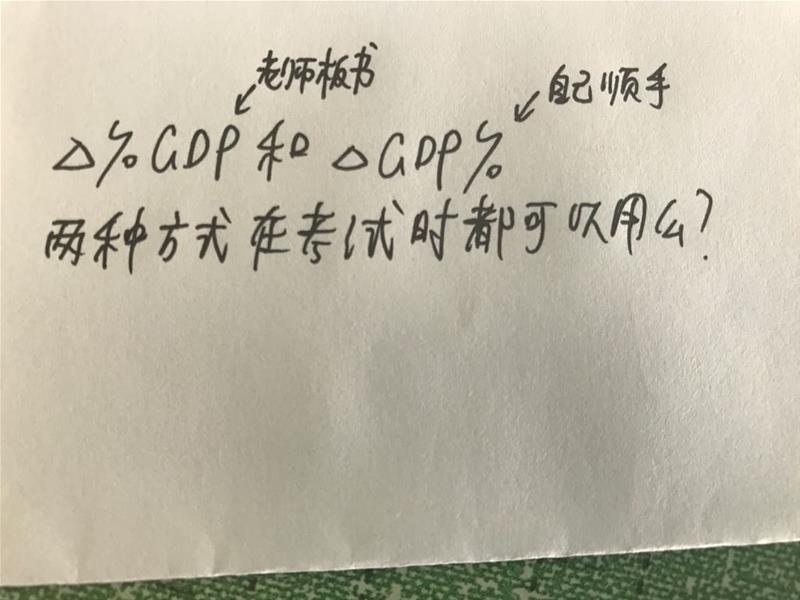 老师板书
自己顺手
△%GDP和 △GDP%
两种方式在考试时都可以用么?